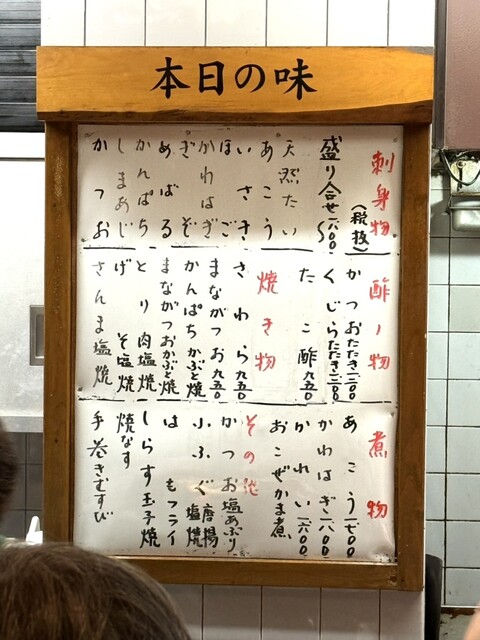 本日の味
刺身物
(税抜)
盛り合せ一六〇〇〜
天然たい
あこう
いさき
ほご
かわはぎ
ぎぞ
めばる
かんぱち
しまあじ
かつお
酢ノ物
かつおたたき一二〇〇
くじらたたき一二〇〇
たこ酢九五〇
焼き物
さわら九五〇
まながつお九五〇
かんぱちかぶと焼
まながつおかぶと焼
とり肉塩焼
げそ塩焼
さんま塩焼
煮物
あこう一七〇〇
かわはぎ一八〇〇
かれい一六〇〇
おこぜかま煮
その他
かつお塩あぶり
小ふぐ唐揚
塩焼
はもフライ
しらす玉子焼
焼なす
手巻きむすび